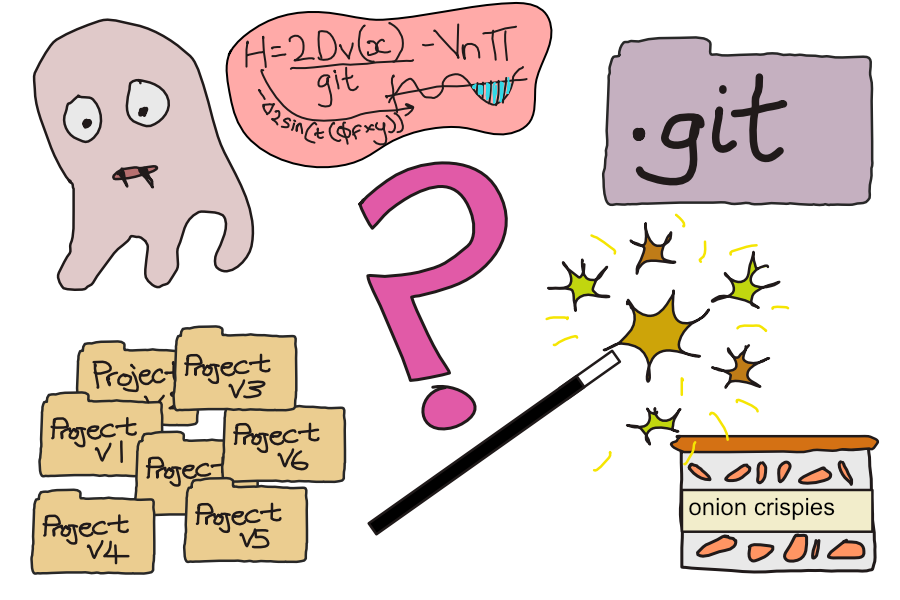 H=2Dv(x) -VnΠ
git
-∇2sin(t(φfxy))
.git
Project
Project
V3
Project
V1
Project
V6
Project
Project
V4
Project
V5
onion crispies